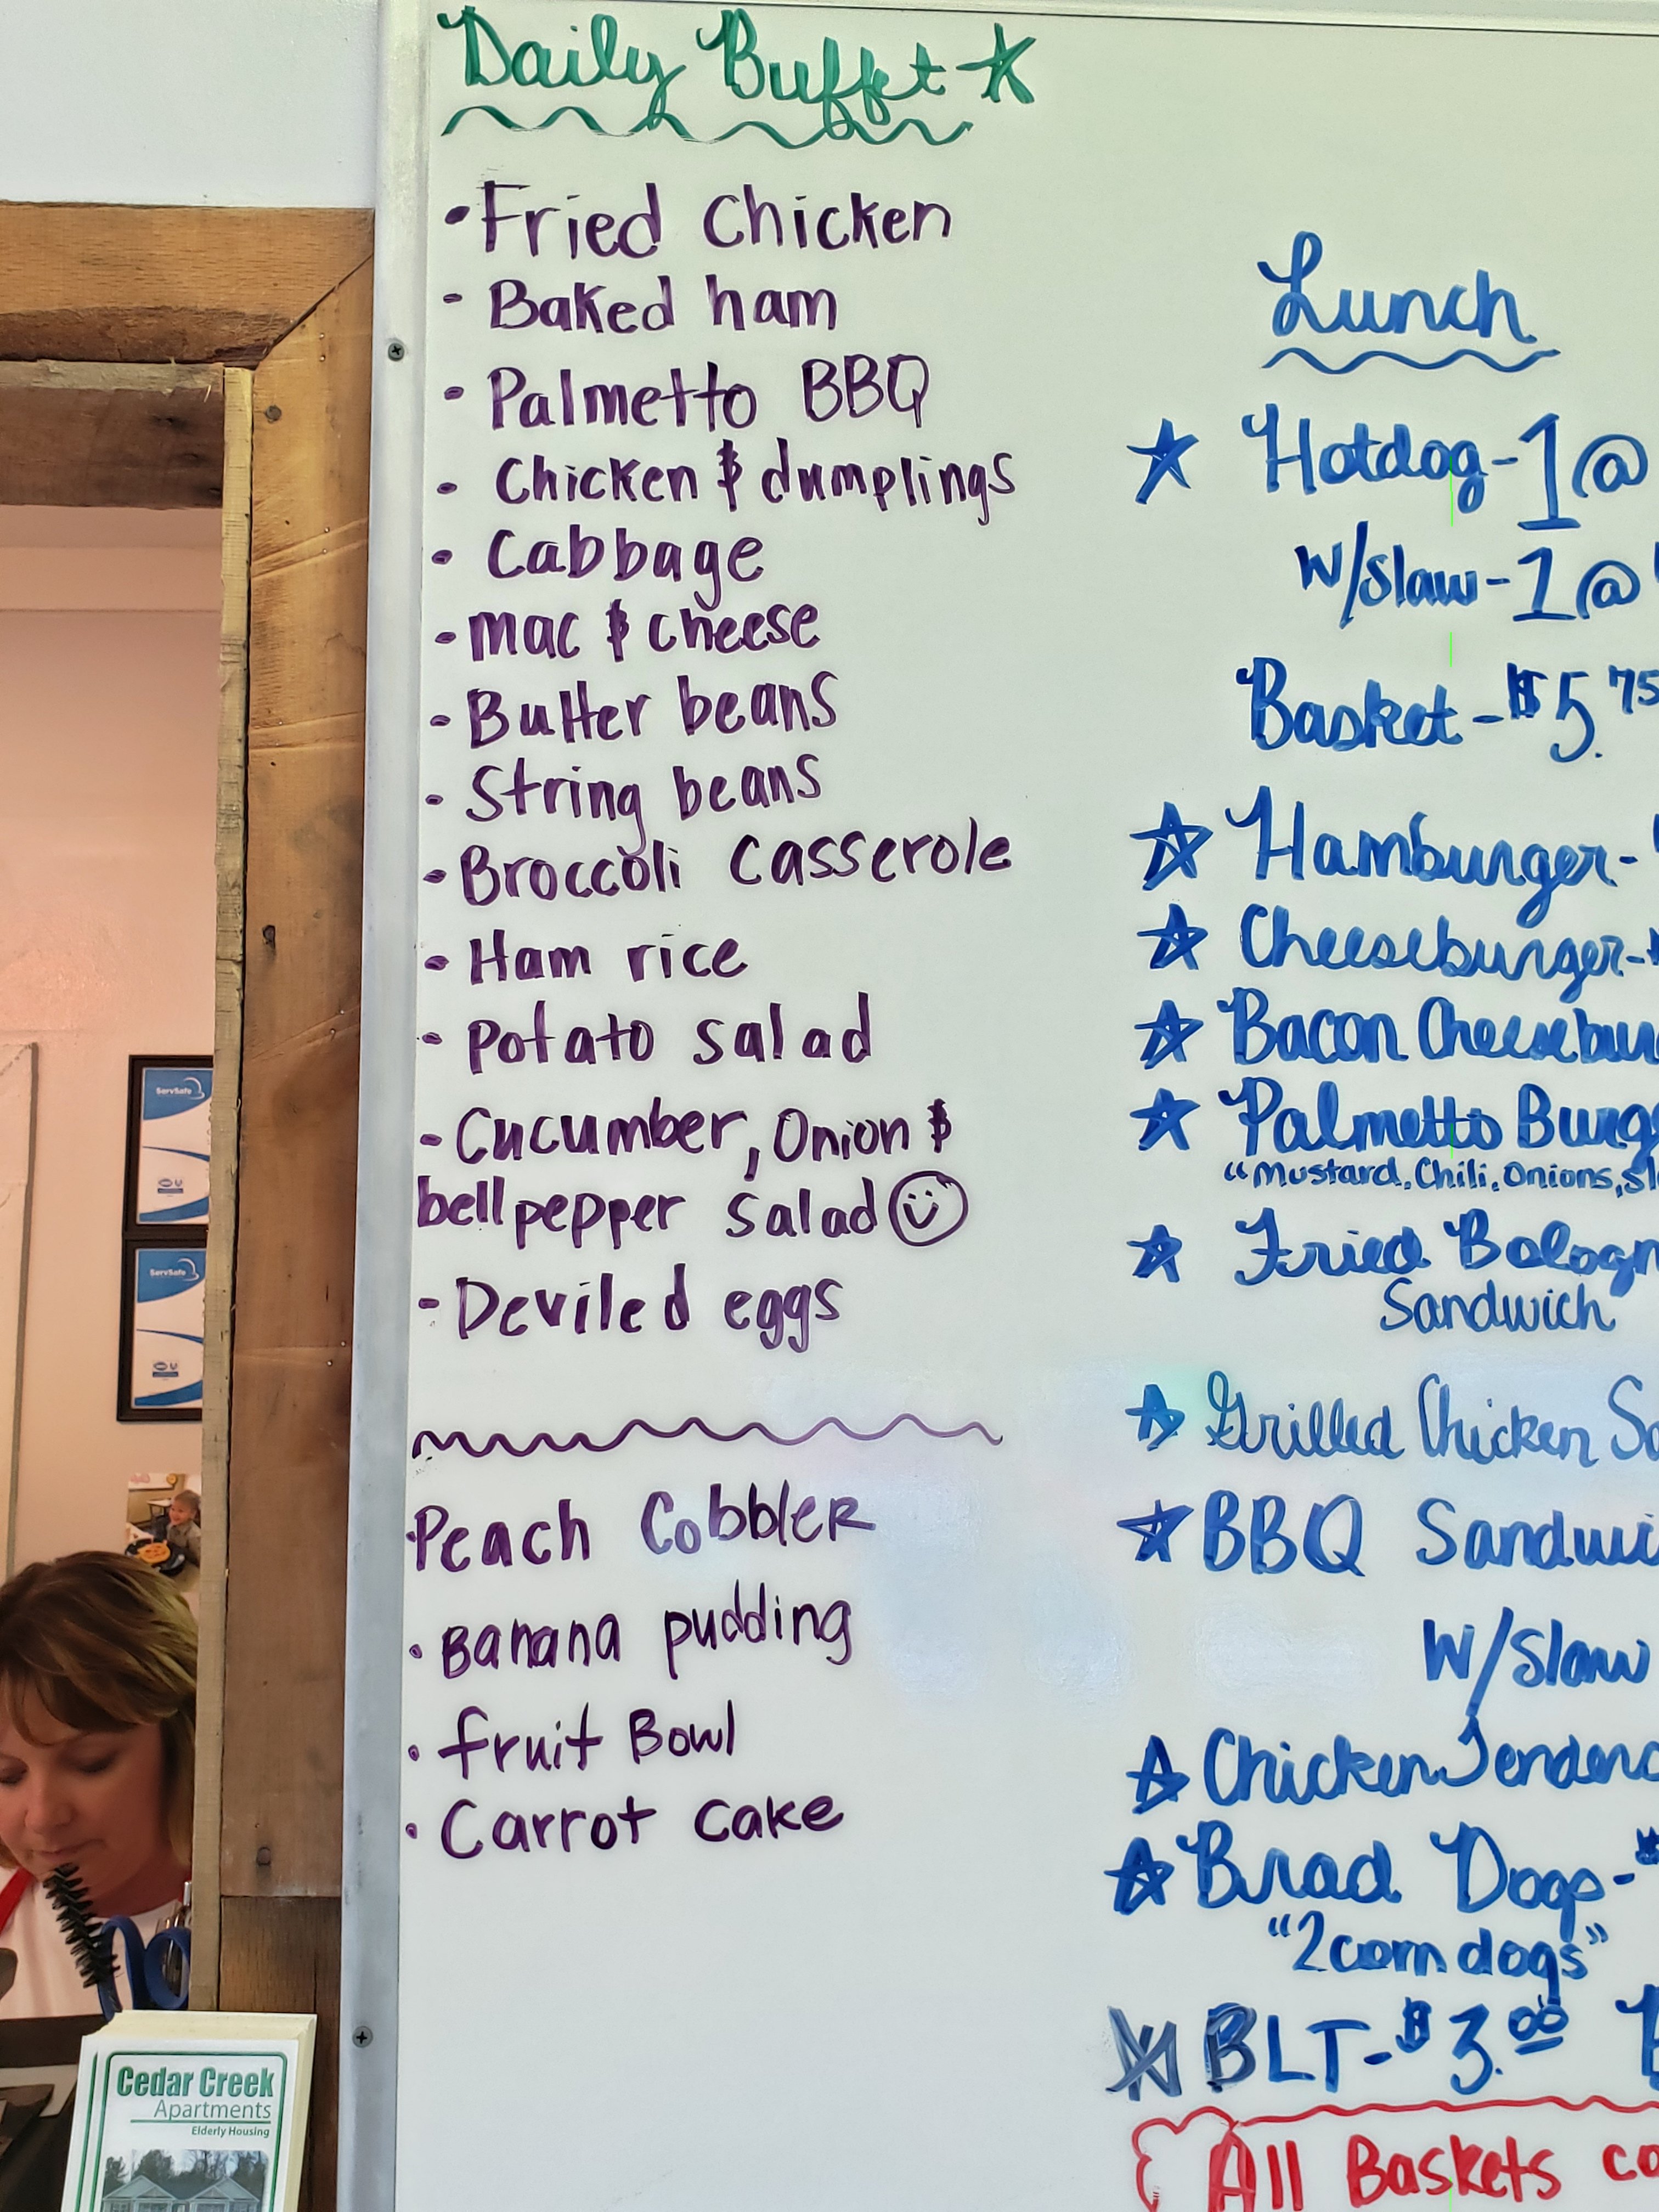 Daily Buffet
• Fried Chicken
- Baked ham
- Palmetto BBQ
- Chicken & dumplings
- Cabbage
- mac & cheese
- Butter beans
- String beans
- Broccoli Casserole
- Ham rice
- Potato salad
- Cucumber, Onion &
bell pepper salad
- Deviled eggs
Peach Cobbler
• Banana pudding
• fruit Bowl
• Carrot cake
Lunch
Hotdog-1@
w/slaw-1@
Basket-$5.75
Hamburger-
Cheeseburger-
Bacon
Palmetto
"Mustard, Chili, Onions,
Fried
Sandwich
Grilled Chicken
BBQ
w/slaw
Chicken
Brad Dogs-
"2 corn dogs"
BLT-$3.00
All Baskets
ServSafe
ServSafe
Cedar Creek
Apartments
Elderly Housing